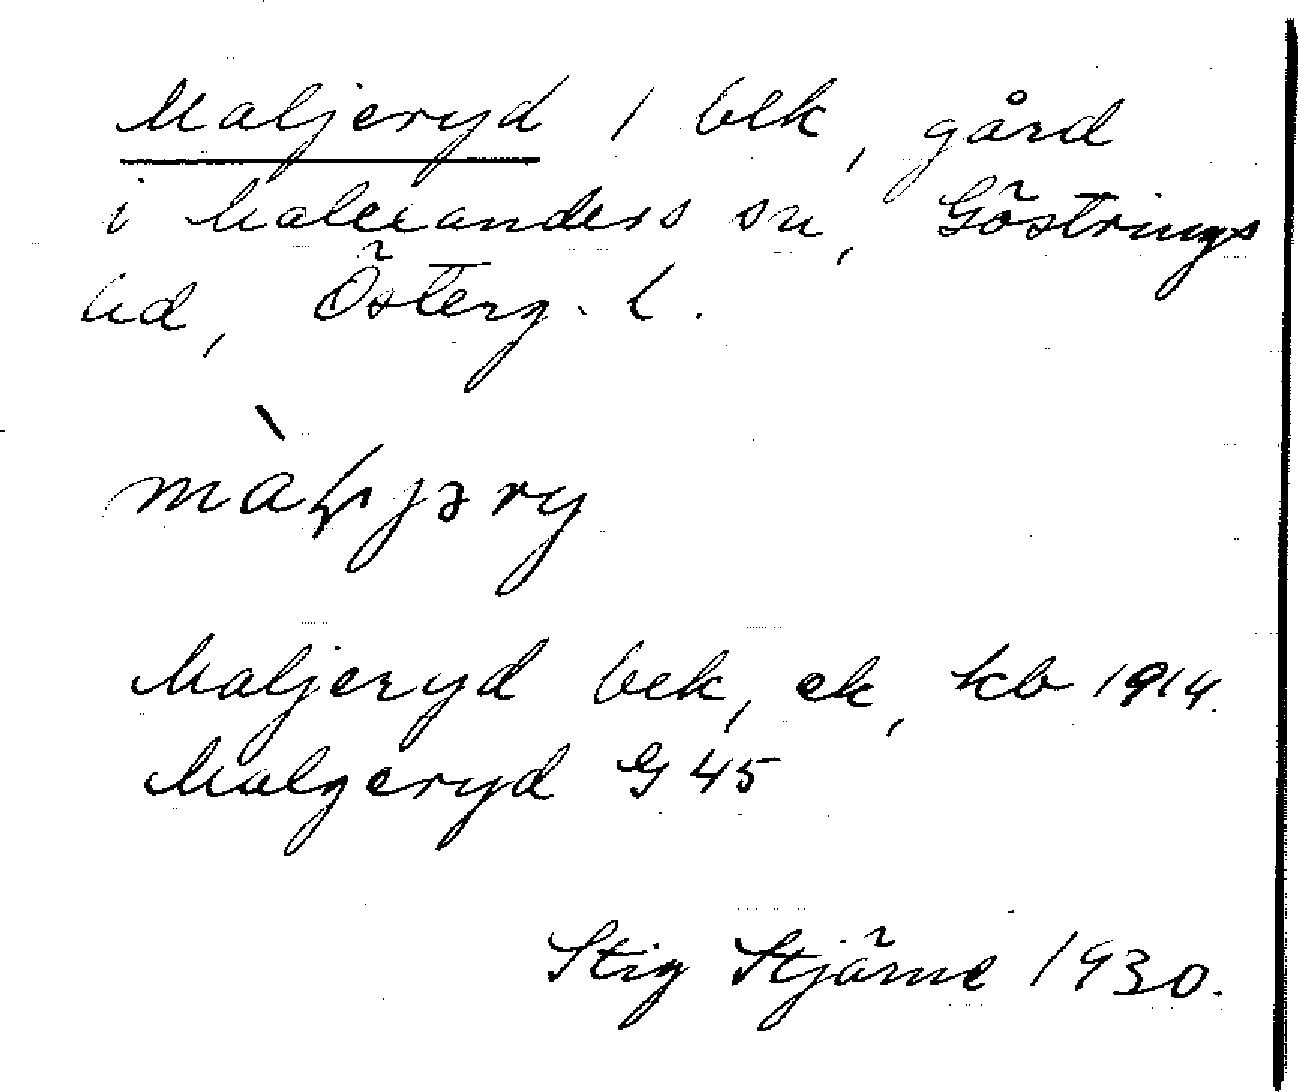 Maljeryd 1 bek, gård
i Malexanders sn, Göstrings
hd, Österg. l.
Maljeryd bek, ek, kb 1914.
Malgeryd G 45
Stig Stjärne 1930.